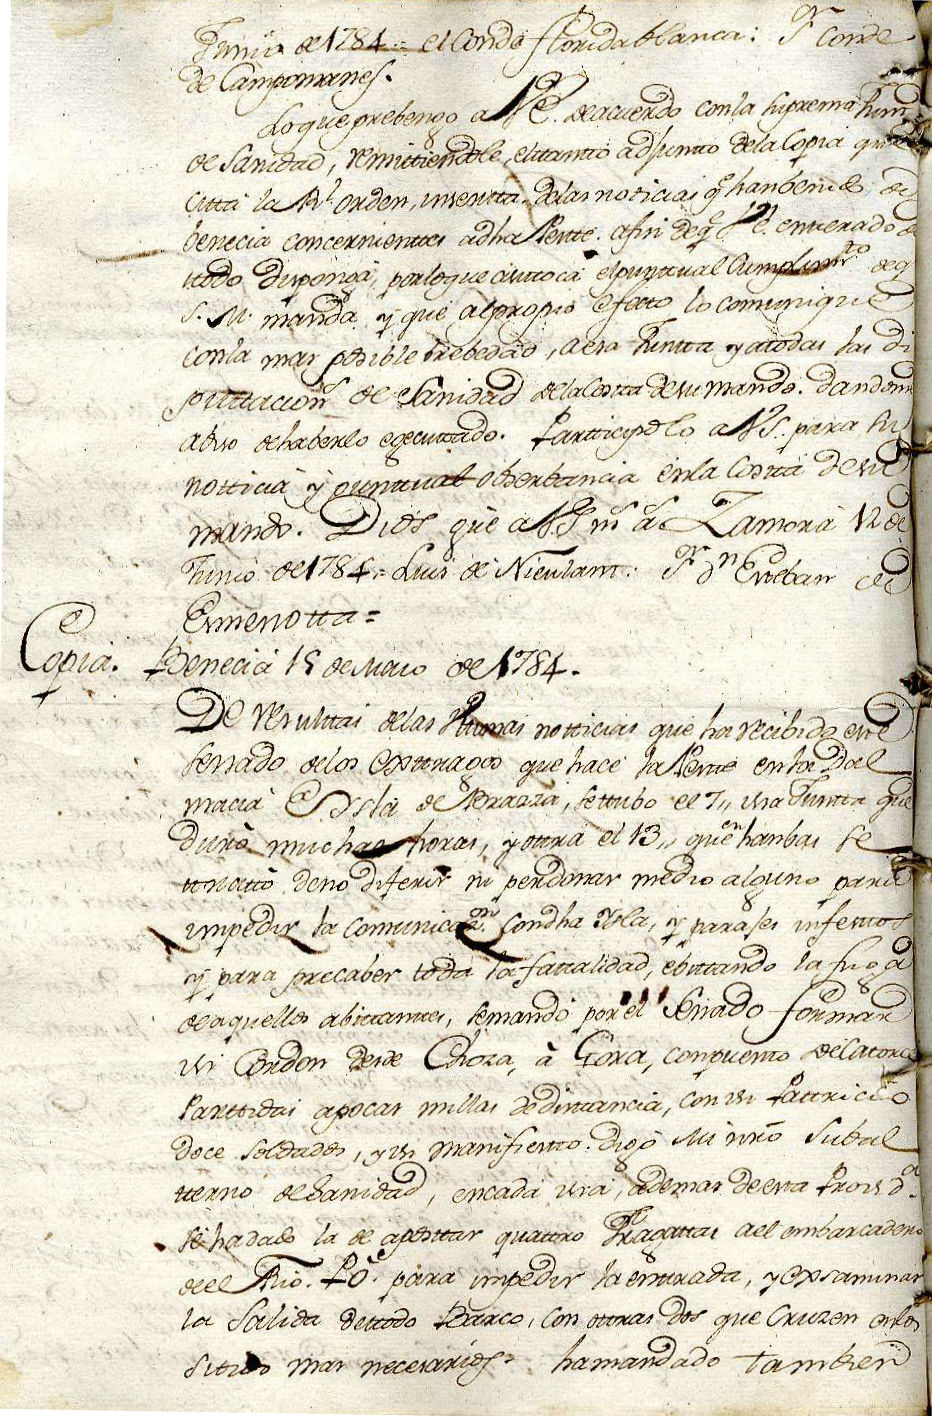 Junio de 1784 = el Conde Floridablanca: Sr Conde
de Campomanes.
Lo que prebengo a VE. de acuerdo con la suprema Junta
de Sanidad, remitiendole el tanto adjunto de la Copia que
citta la Rl. orden, inserta, de las noticias qe han benido de
benecia concernientes a dha Peste. a fin de qe VE. enterado de
ttodo disponga, por lo que le ttoca el puntual Cumplimto de q
S. M. manda y que al propio efecto lo comunique
con la mas posible brebedad, a esa Juntta y a ttodas las Di
puttacions de Sanidad de la Costa de su mando. dandome
abiso de haberlo egecuttado. Partticipolo a VS. para su
notticia y punttual obserbancia en la Costa de su
mando. Dios gue a VS ms as Zamora 12 de
Junio de 1784 = Luis de Nieulant. Sr Dn Esteban de
Esmenotta =
Copia. Benecia 15 de Maio de 1784.
De resultas de las ultimas notticias que ha recibido este
Senado de los Extragos que hace la Peste en la Dal
macia è Ysla de Brazza, se ttubo el 7,, una Juntta que
durò muchas horas, y ottra el 13,, que en hambas se
ttrattò de no diferir ni perdonar medio alguno para
impedir la comunicaon. con dha Ysla, y parages infectos
y para precaber toda la fattalidad, ebittando la fuga
de aquellos abitantes, se mandó por el Senado formar
un Cordon desde Choza, à Goxa, compuesto de Catorce
Parttidas a pocas millas de distancia, con un Pattricio
doce soldados, y un manifiesto digo Ministro Subal
tterno de Sanidad, en cada una, ademas de esta Provida.
se ha dado la de apostar quattro Fragattas a el embarcadero
del Rio. Pò. para impedir la entrada, y exsaminar
la Salida de ttodo Barco, con ottras dos que Cruzen en los
Sitios mas necesarios. ha mandado tambien